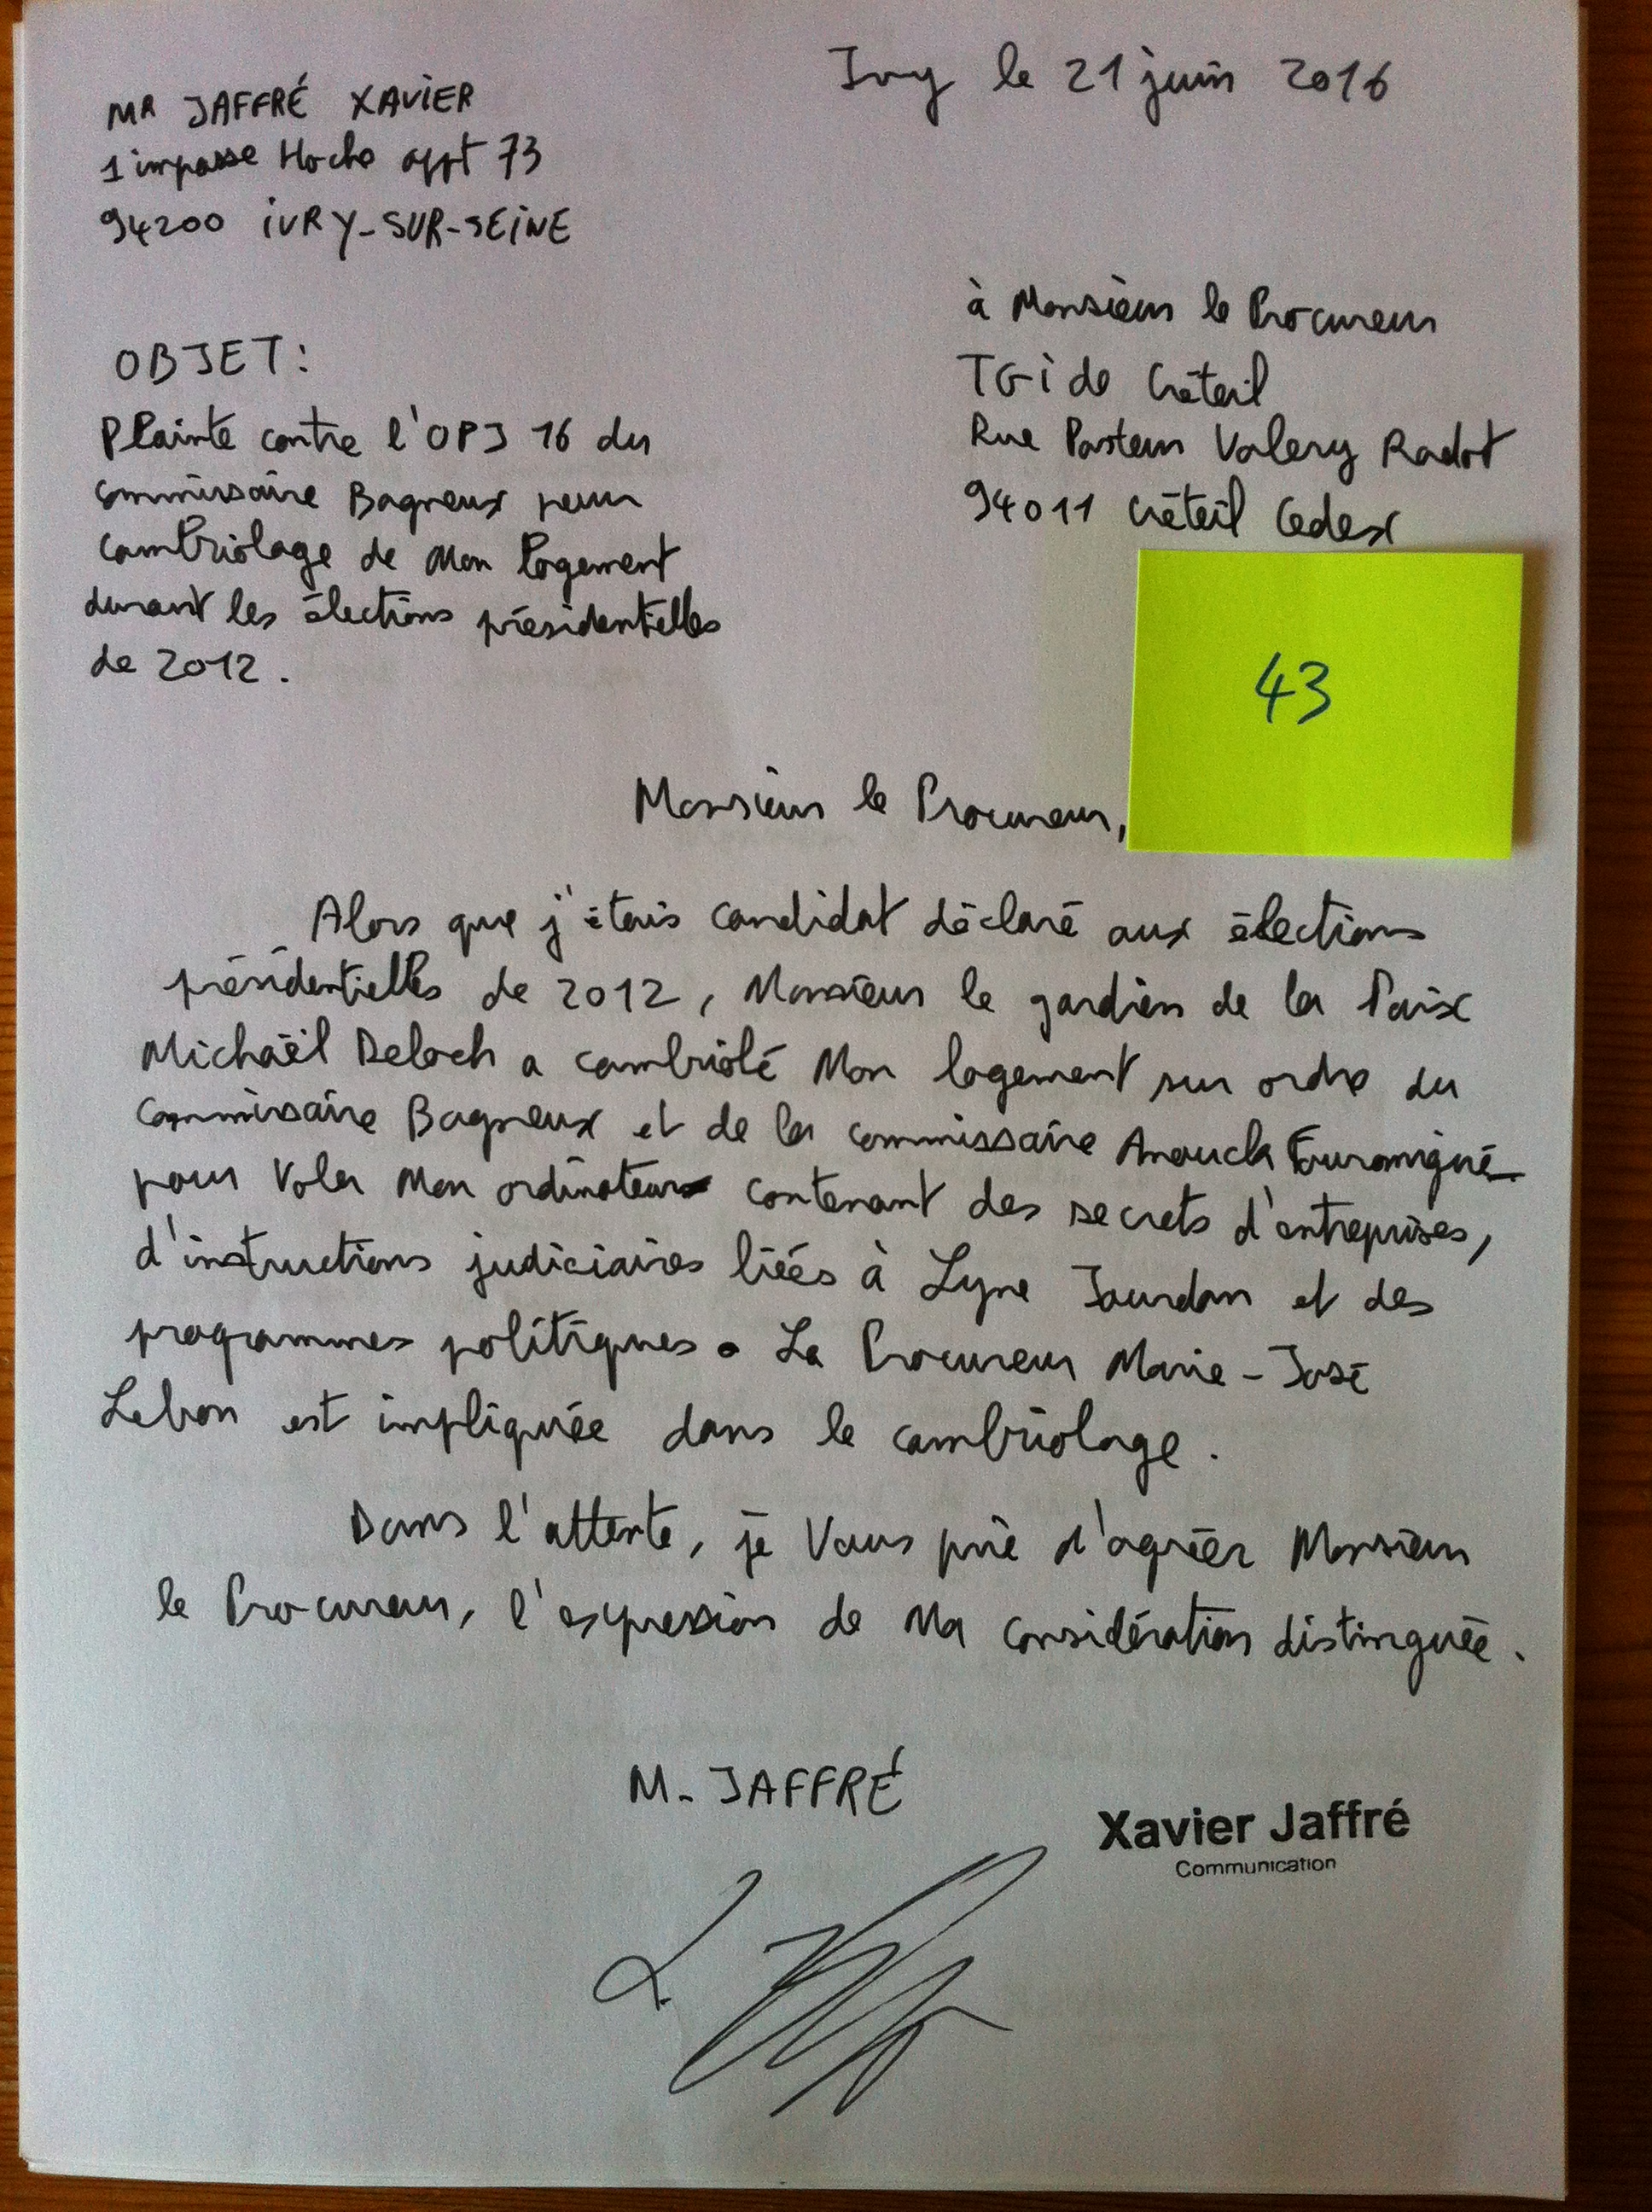 Ivry le 21 juin 2016
MR JAFFRÉ XAVIER
1 impasse Hoche appt 73
94200 IVRY-SUR-SEINE
à Monsieur le Procureur
TGI de Créteil
Rue Pasteur Valery Radot
94011 Créteil Cedex
OBJET:
Plainte contre l'OPJ 16 du
commissaire Bagneux pour
cambriolage de Mon logement
durant les élections présidentielles
de 2012.
43
Monsieur le Procureur,
Alors que j'étais candidat déclaré aux élections
présidentielles de 2012, Monsieur le gardien de la Paix
Michaël Deloch a cambriolé Mon logement sur ordre du
commissaire Bagneux et de la commissaire Anouck Fouromigué
pour Voler Mon ordinateur contenant des secrets d'entreprises,
d'instructions judiciaires liées à Lyne Jourdan et des
programmes politiques. La Procureur Marie-José
Lebon est impliquée dans le cambriolage.
Dans l'attente, je Vous prie d'agréer Monsieur
le Procureur, l'expression de Ma considération distinguée.
M. JAFFRÉ
Xavier Jaffré
Communication